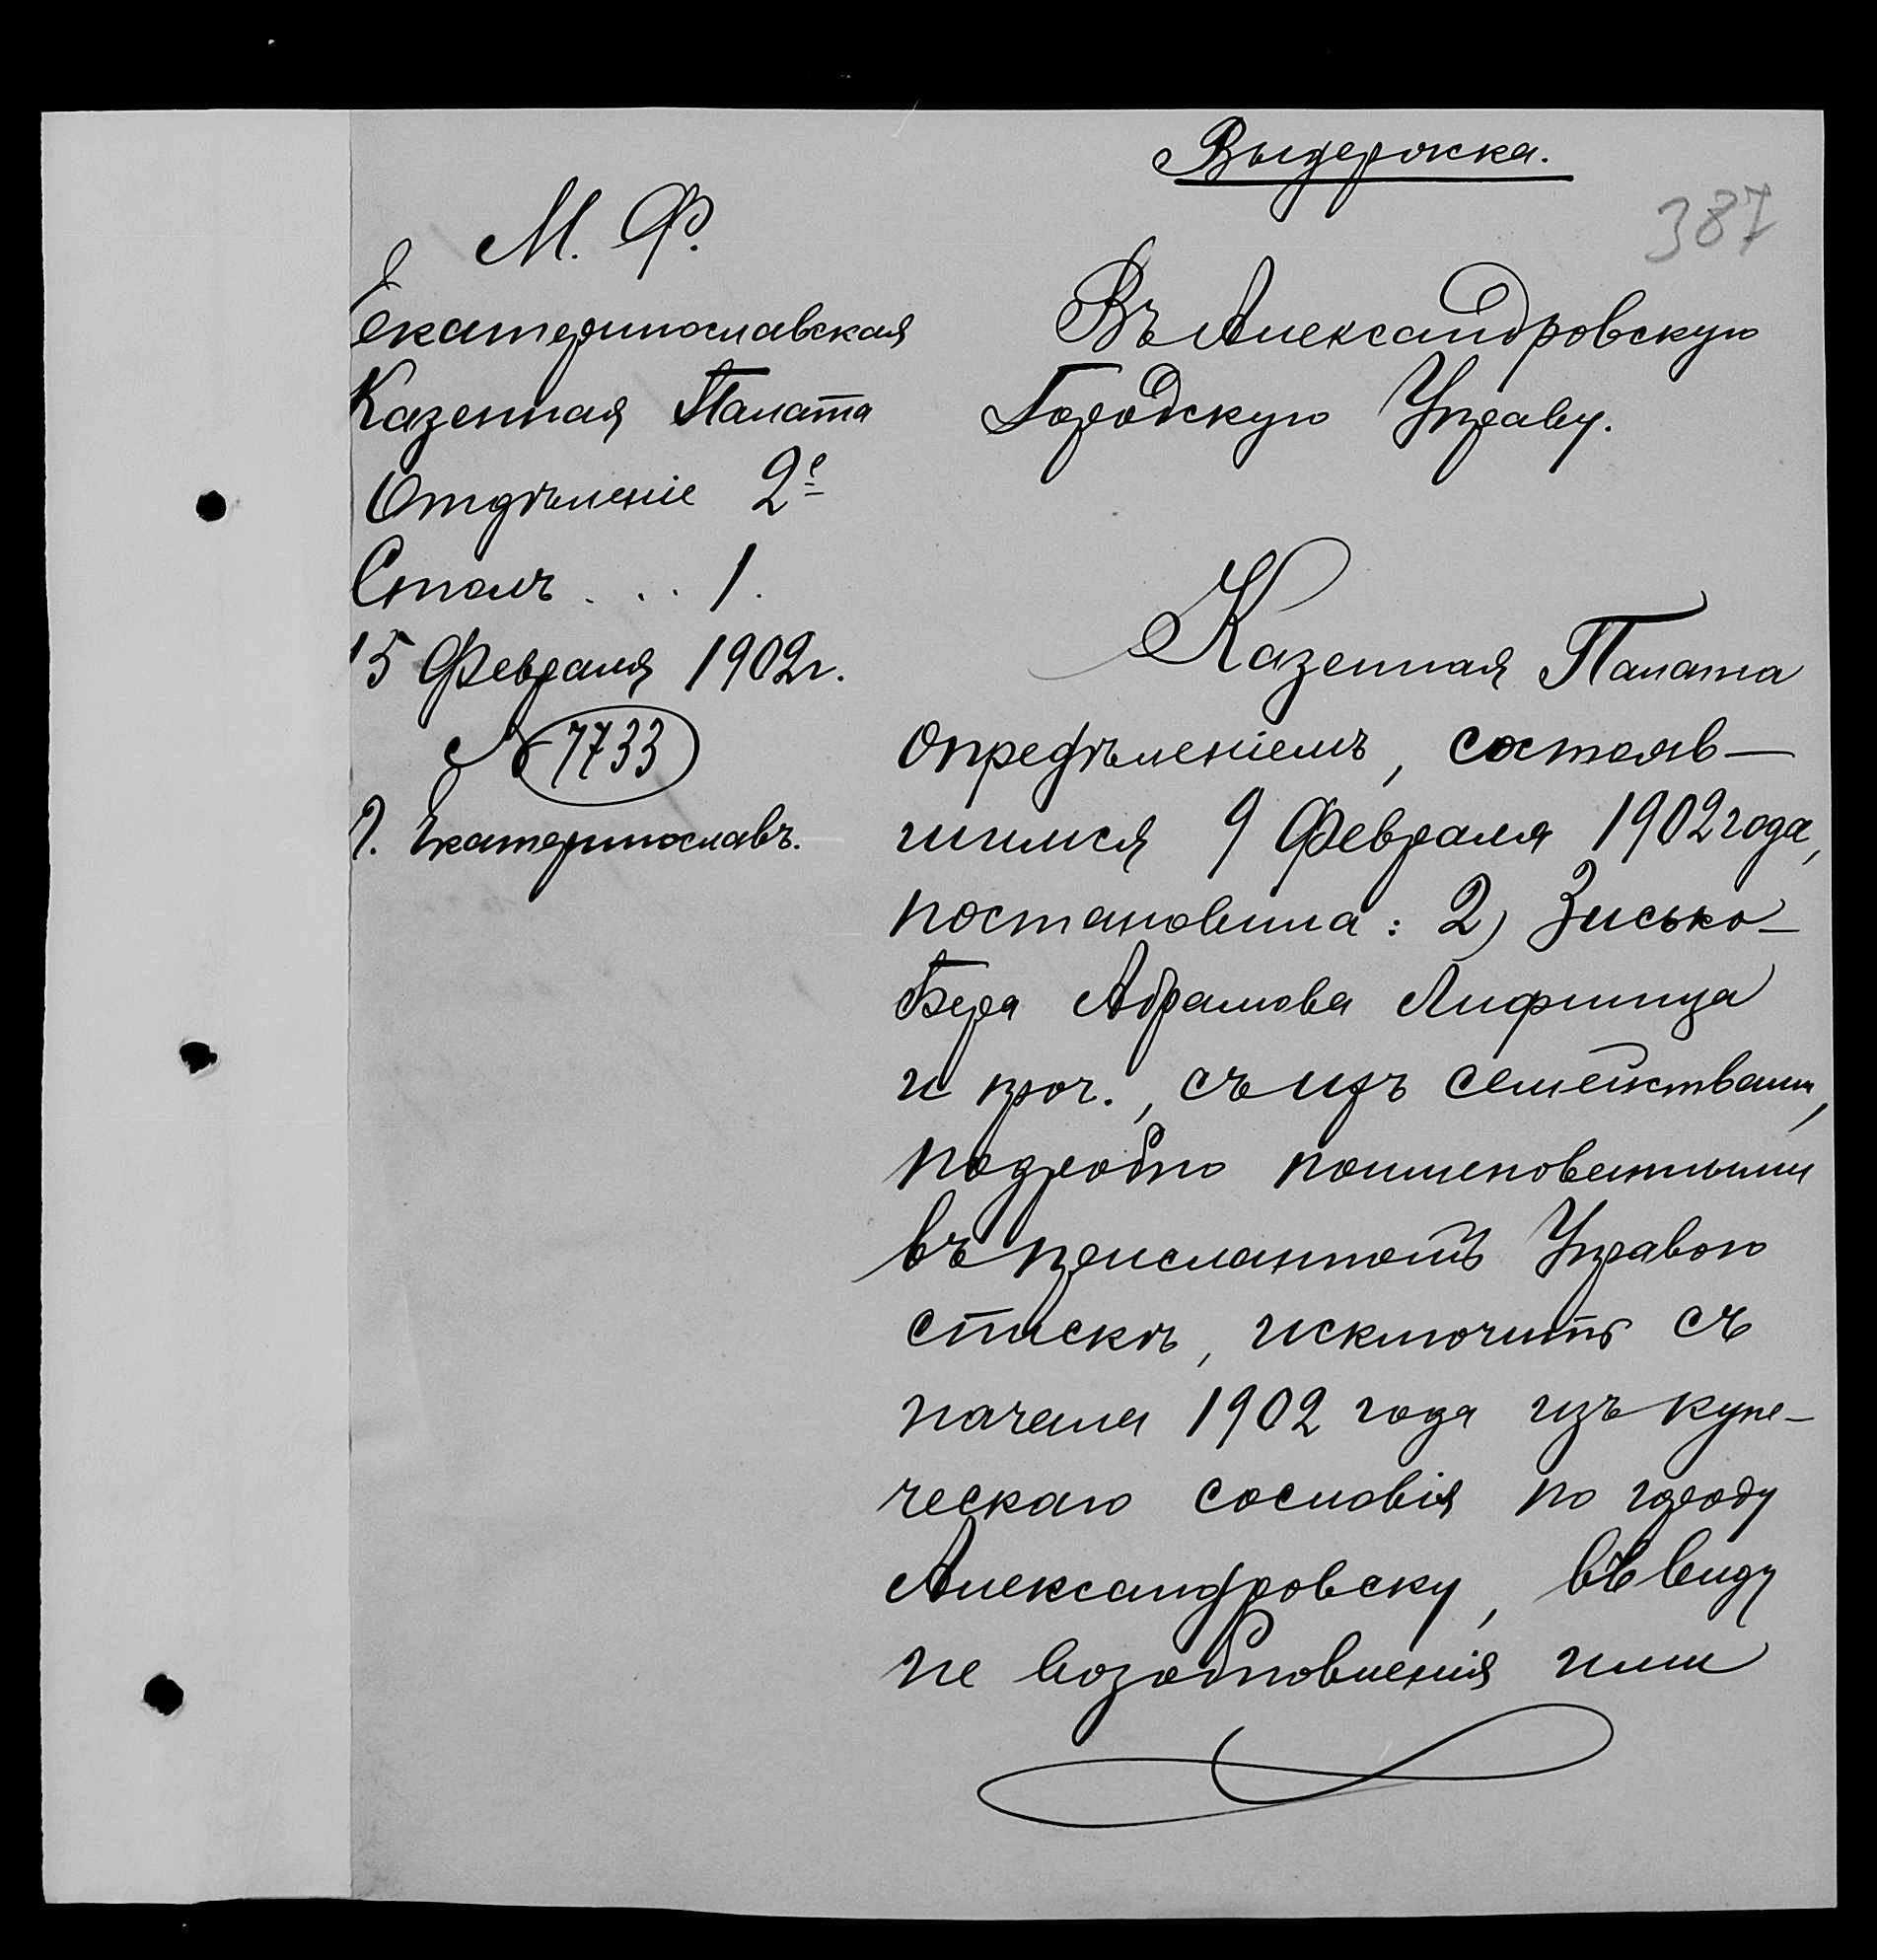 Выдержка.
387
М. Ф.
Екатеринославская
Казенная Палата
Отдѣленіе 2е
Столъ . . . 1.
15 Февраля 1902 г.
№ 7733
Г. Екатеринославъ.
Въ Александровскую
Городскую Управу.
Казенная Палата
опредѣленіемъ, состояв-
шимся 9 Февраля 1902 года,
постановила: 2) Зисько-
Бера Абрамова Лифшица
и проч., съ ихъ семействами,
подробно поименованными
въ присланномъ Управою
спискѣ, исключить съ
начала 1902 года изъ купе-
ческаго сословія по городу
Александровску, въ виду
не возобновленія ими